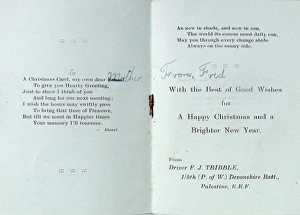 To
A Christmas Card, my own dear Mother,
To give you Hearty Greeting,
Just to show I think of you
And long for our next meeting;
I wish the hours may swiftly pass
To bring that time of Pleasure,
But till we meet in Happier times
Your memory I'll treasure.
As now in shade, and now in sun,
The world its course must daily run,
May you through every change abide
Always on the sunny side.
From Fred
With the Best of Good Wishes
for
A Happy Christmas and a
Brighter New Year.
From
Driver F. J. TRIBBLE,
1/5th (P. of W.) Devonshire Batt.,
Palestine, E.E.F.